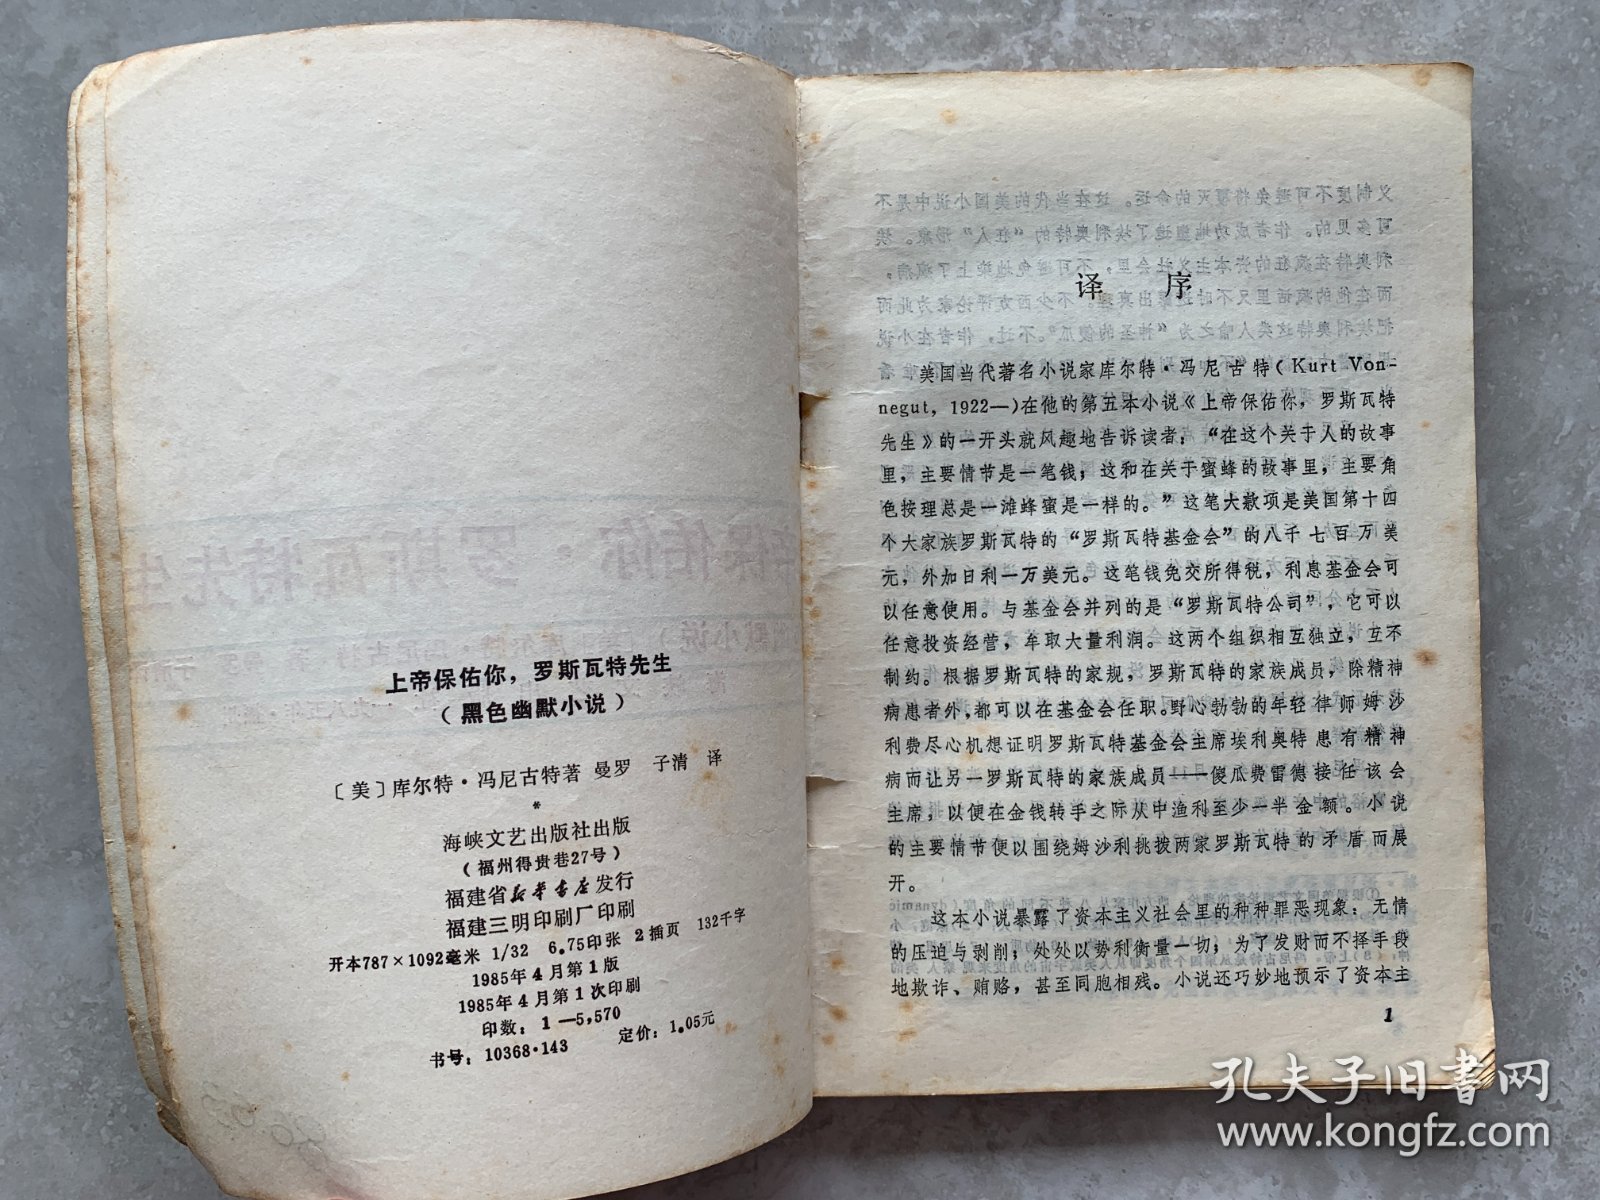 上帝保佑你，罗斯瓦特先生
（黑色幽默小说）
〔美〕库尔特·冯尼古特著 曼罗 子清 译
*
海峡文艺出版社出版
（福州得贵巷27号）
福建省新华书店发行
福建三明印刷厂印刷
开本787×1092毫米 1/32 6.75印张 2插页 132千字
1985年4月第1版
1985年4月第1次印刷
印数：1—5,570
书号：10368·143 定价：1.05元
译 序
美国当代著名小说家库尔特·冯尼古特（Kurt Von-
negut, 1922—）在他的第五本小说《上帝保佑你，罗斯瓦特
先生》的一开头就风趣地告诉读者：“在这个关于人的故事
里，主要情节是一笔钱；这和在关于蜜蜂的故事里，主要角
色按理总是一滩蜂蜜是一样的。”这笔大款项是美国第十四
个大家族罗斯瓦特的“罗斯瓦特基金会”的八千七百万美
元，外加日利一万美元。这笔钱免交所得税，利息基金会可
以任意使用。与基金会并列的是“罗斯瓦特公司”，它可以
任意投资经营，牟取大量利润。这两个组织相互独立，互不
制约。根据罗斯瓦特的家规，罗斯瓦特的家族成员，除精神
病患者外，都可以在基金会任职。野心勃勃的年轻律师姆沙
利费尽心机想证明罗斯瓦特基金会主席埃利奥特患有精神
病而让另一罗斯瓦特的家族成员——傻瓜费雷德接任该会
主席，以便在金钱转手之际从中渔利至少一半金额。小说
的主要情节便以围绕姆沙利挑拨两家罗斯瓦特的矛盾而展
开。
这本小说暴露了资本主义社会里的种种罪恶现象：无情
的压迫与剥削；处处以势利衡量一切；为了发财而不择手段
地欺诈、贿赂，甚至同胞相残。小说还巧妙地预示了资本主
1
孔夫子旧书网
www.kongfz.com